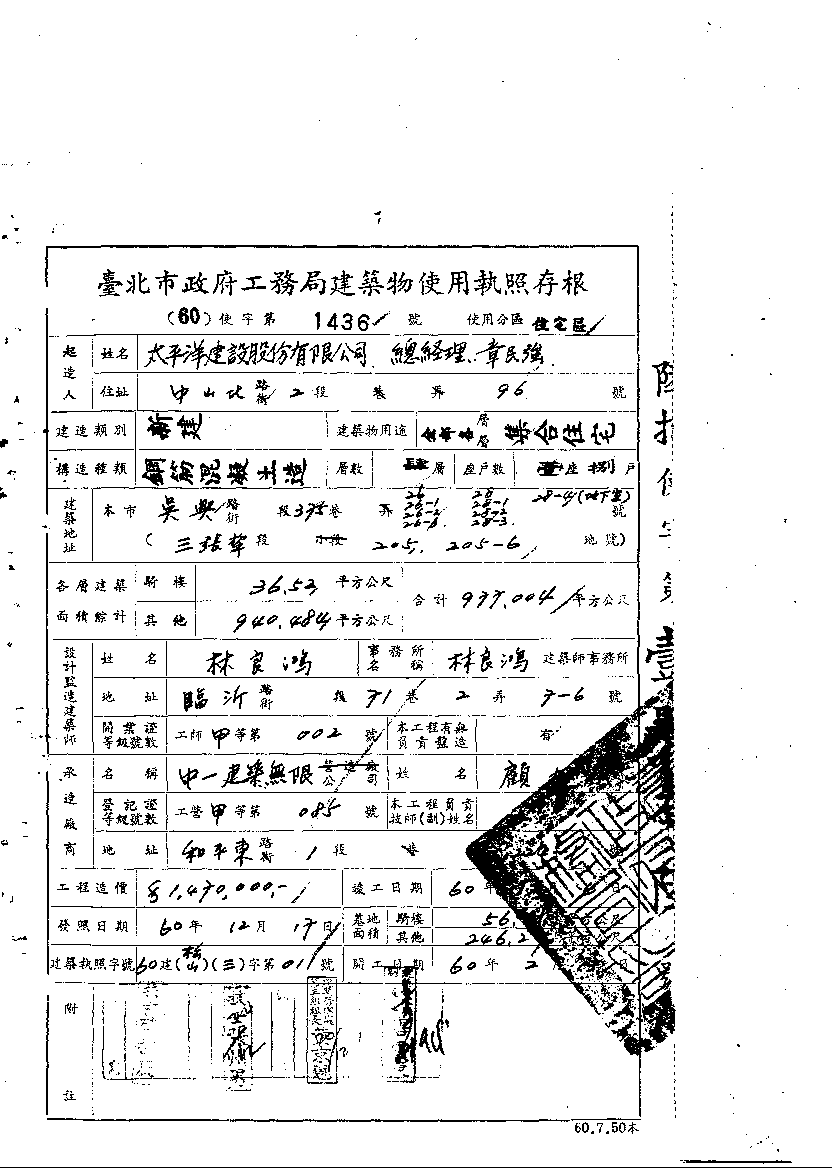 臺北市政府工務局建築物使用執照存根
(60)使字第 1436 號 使用分區 住宅區
起造人 姓名 太平洋建設股份有限公司 總經理 韋民強
住址 中山北路街 2段 巷 弄 96 號
建造類別 新建 建築物用途 全部各層層 集合住宅
構造種類 鋼筋混凝土造 層數 層 座戶數 座捌戶
建築地址 本市 吳興路街 段375巷 弄 26 26-1 26-2 26-3 28 28-1 28-2 28-3 28-4(地下室) 號
(三張犂段 小段 205, 205-6 地號)
各層建築面積綜計 騎樓 36.52 平方公尺 合計 977.004 平方公尺
其他 940.484 平方公尺
設計監造建築師 姓名 林良鴻 事務所名稱 林良鴻 建築師事務所
地址 臨沂路街 段 71巷 2弄 7-6號
開業證等級號數 工師甲等第 002 號 本工程有無負責監造 有
承造廠商 名稱 中一建築無限營造廠公司 姓名 顧
登記證等級號數 工營甲等第 085 號 本工程負責技師(副)姓名
地址 和平東路街 1段 巷
工程造價 $1,470,000,- 竣工日期 60年
發照日期 60年 12月 17日 基地面積 騎樓 56.
其他 246.2
建築執照字號 60建(松山)(三)字第011號 開工日期 60年 2 日
附註
60.7.50本